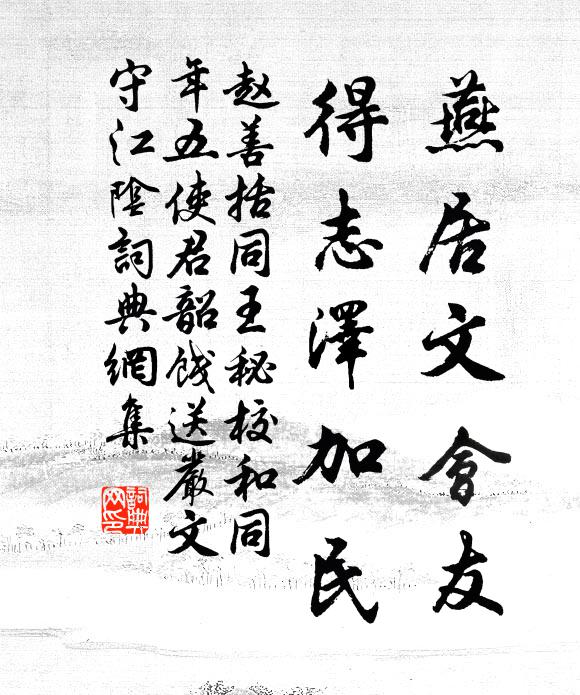 燕居文會友
得志澤加民
赵善括同王秘校和同
年五使君韶餞送嚴文
守江陰詞典網集
詞典
网印